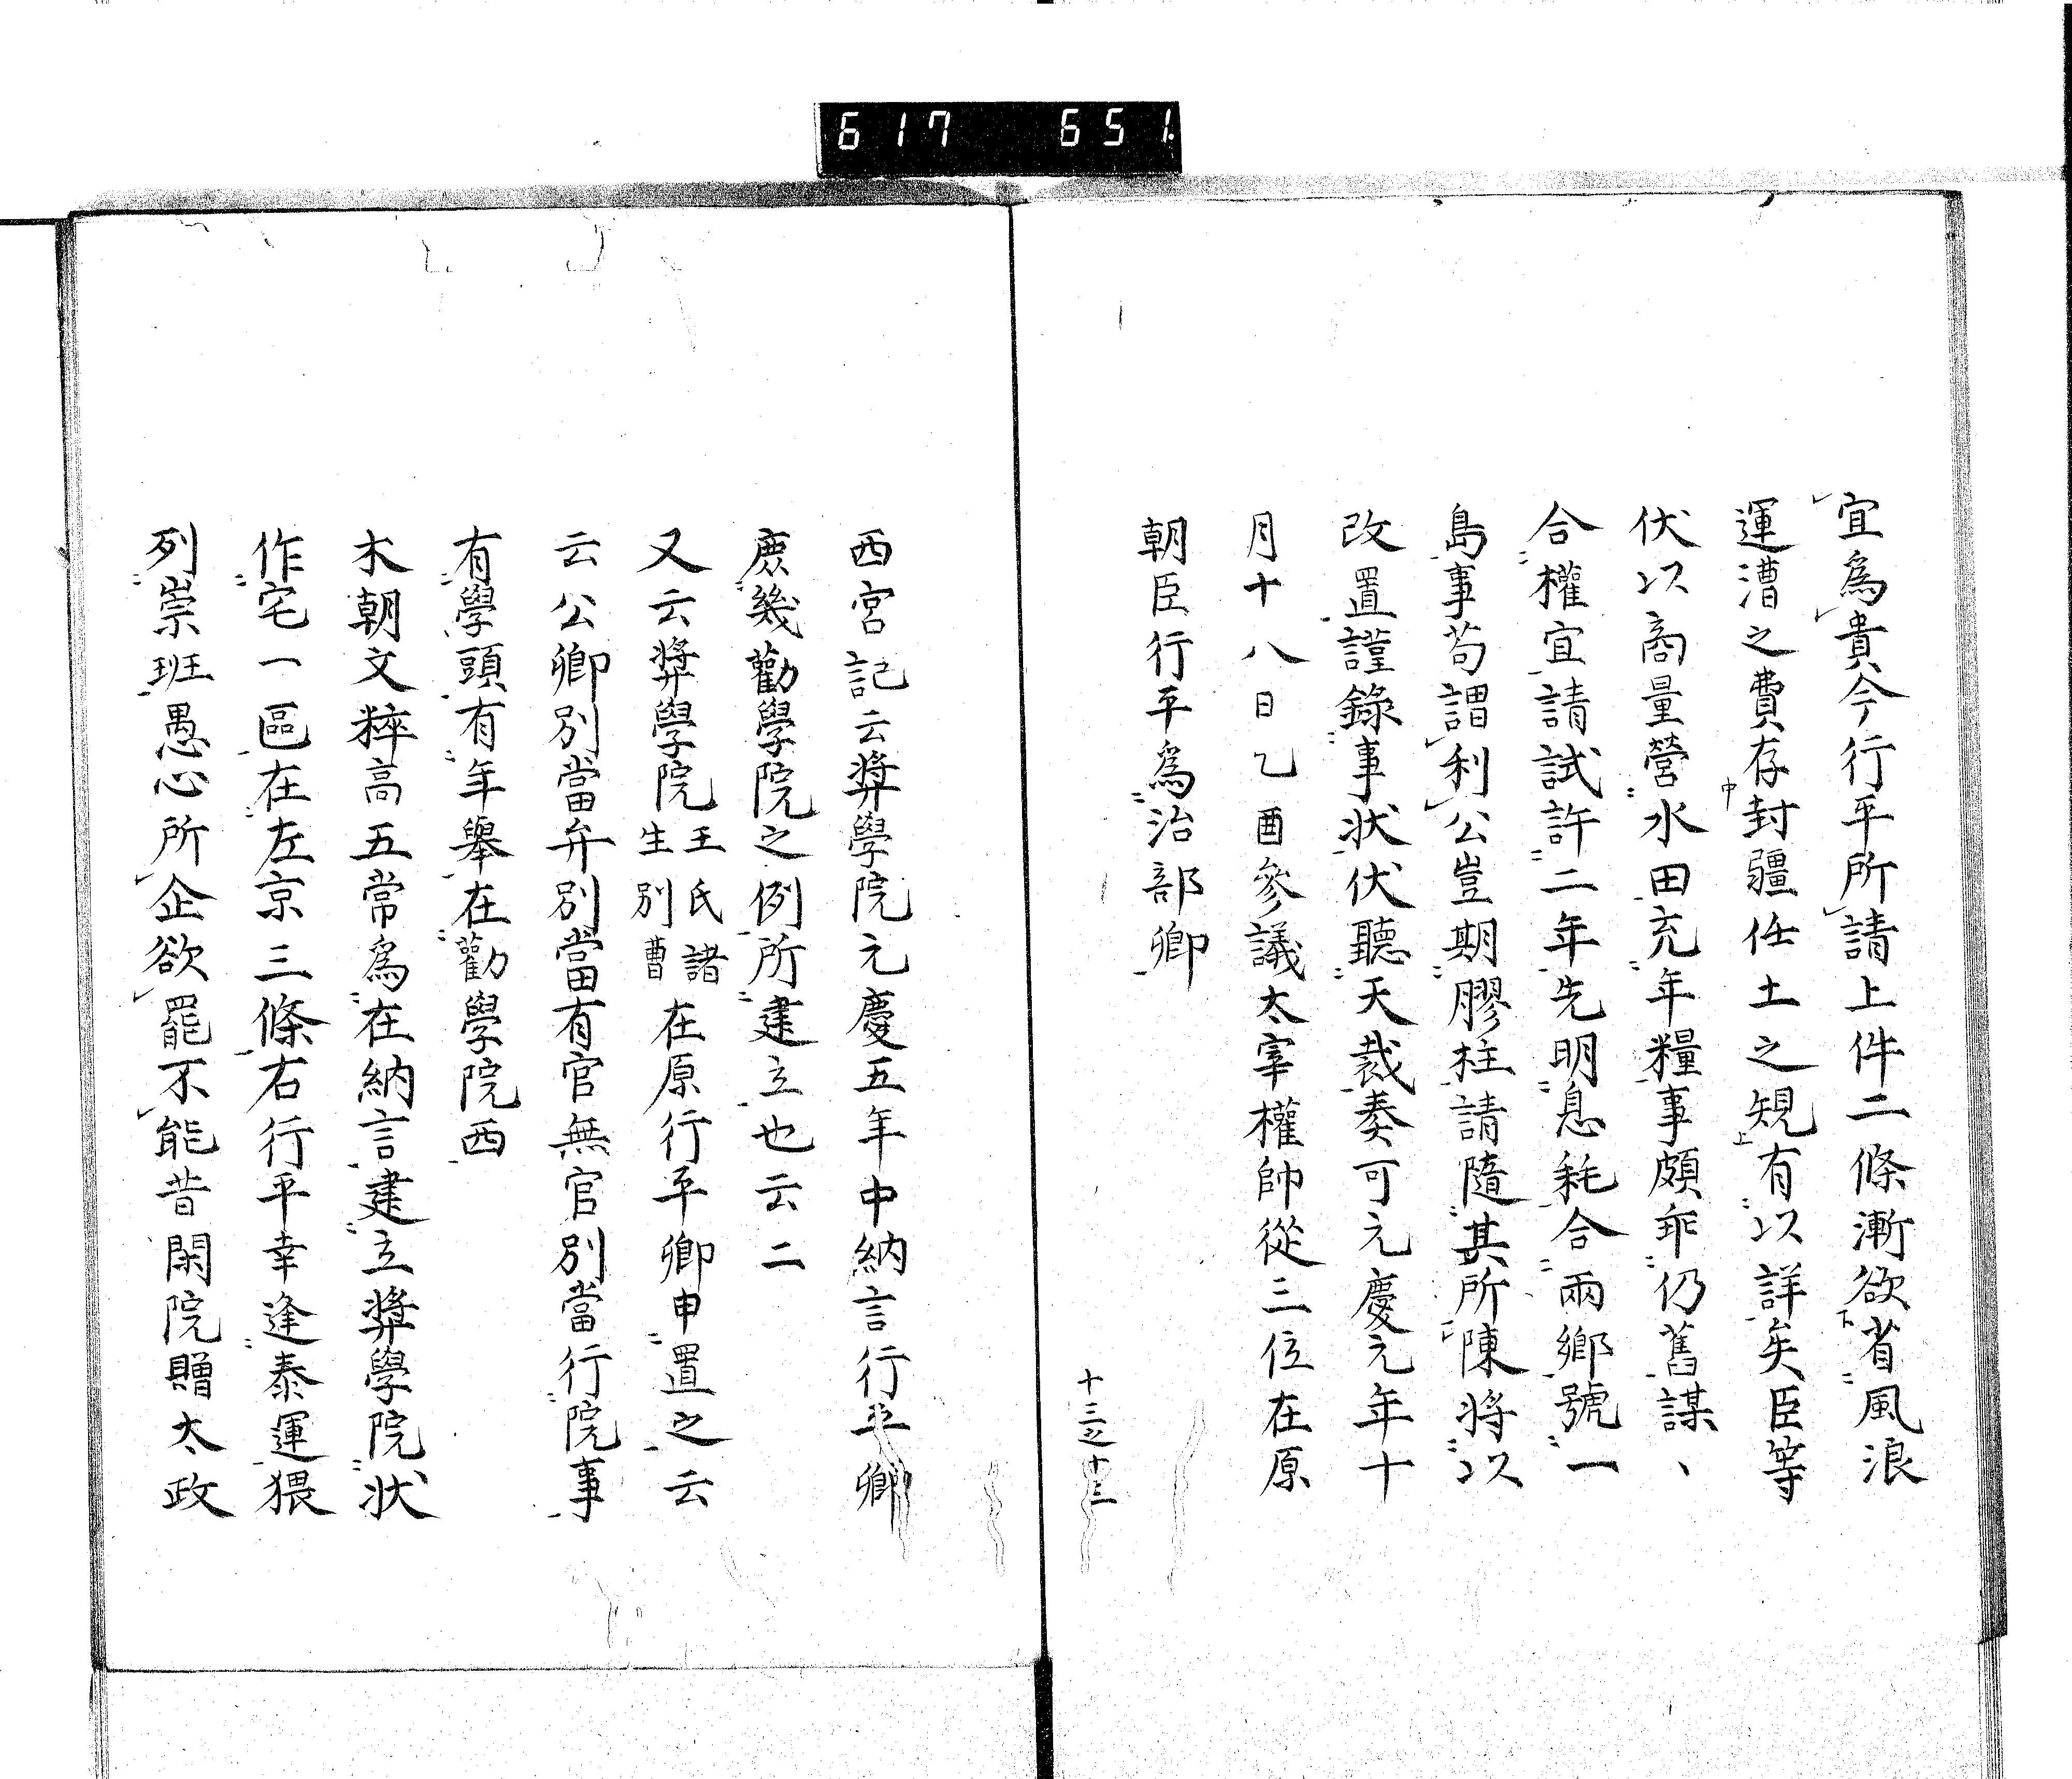 617 651
宜爲貴今行平所請上件二條漸欲省風浪
運漕之費存封疆任土之規有以詳矣臣等
伏以商量營水田充年糧事頗乖仍舊謀、
合權宜請試許二年先明息耗合兩鄉號一
島事苟謂利公豈期膠柱請隨其所陳将以
改置謹錄事状伏聽天裁奏可元慶元年十
月十八日乙酉參議太宰權帥從三位在原
朝臣行平爲治部卿
十三之十三
西宮記云奨學院元慶五年中納言行平卿
庶幾勸學院之例所建立也云二
又云奨學院王氏諸生別曹在原行平卿申置之云
云公卿別當弁別當有官無官別當行院事
有學頭有年舉在勸學院西
木朝文粹高五常爲在納言建立奨學院状
作宅一區在左京三條右行平幸逢泰運猥
列崇班愚心所企欲罷不能昔閑院贈太政